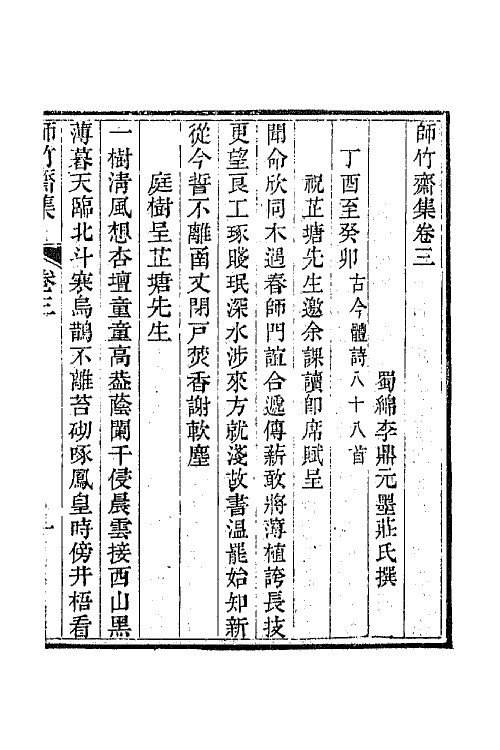 師竹齋集卷三
蜀綿李鼎元墨莊氏撰
丁酉至癸卯古今體詩八十八首
祝芷塘先生邀余課讀卽席賦呈
聞命欣同木遇春師門誼合遞傳薪敢將薄植誇長技
更望良工琢賤珉深水涉來方就淺故書溫罷始知新
從今誓不離函丈閉戸焚香謝軟塵
庭樹呈芷塘先生
一樹淸風想杏壇童童高葢蔭闌干侵晨雲接西山黑
薄暮天臨北斗寒烏鵲不離苔砌啄鳳皇時傍井梧看
師竹齋集
卷三